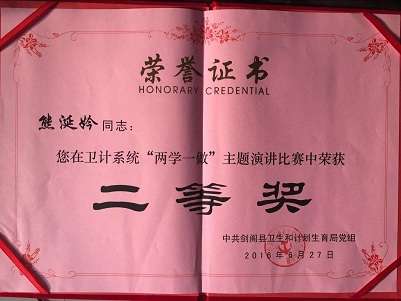 荣誉证书
HONORARY CREDENTIAL
熊涎妗同志：
您在卫计系统“两学一做”主题演讲比赛中荣获
二等奖
中共剑阁县卫生和计划生育局党组
2016年6月27日